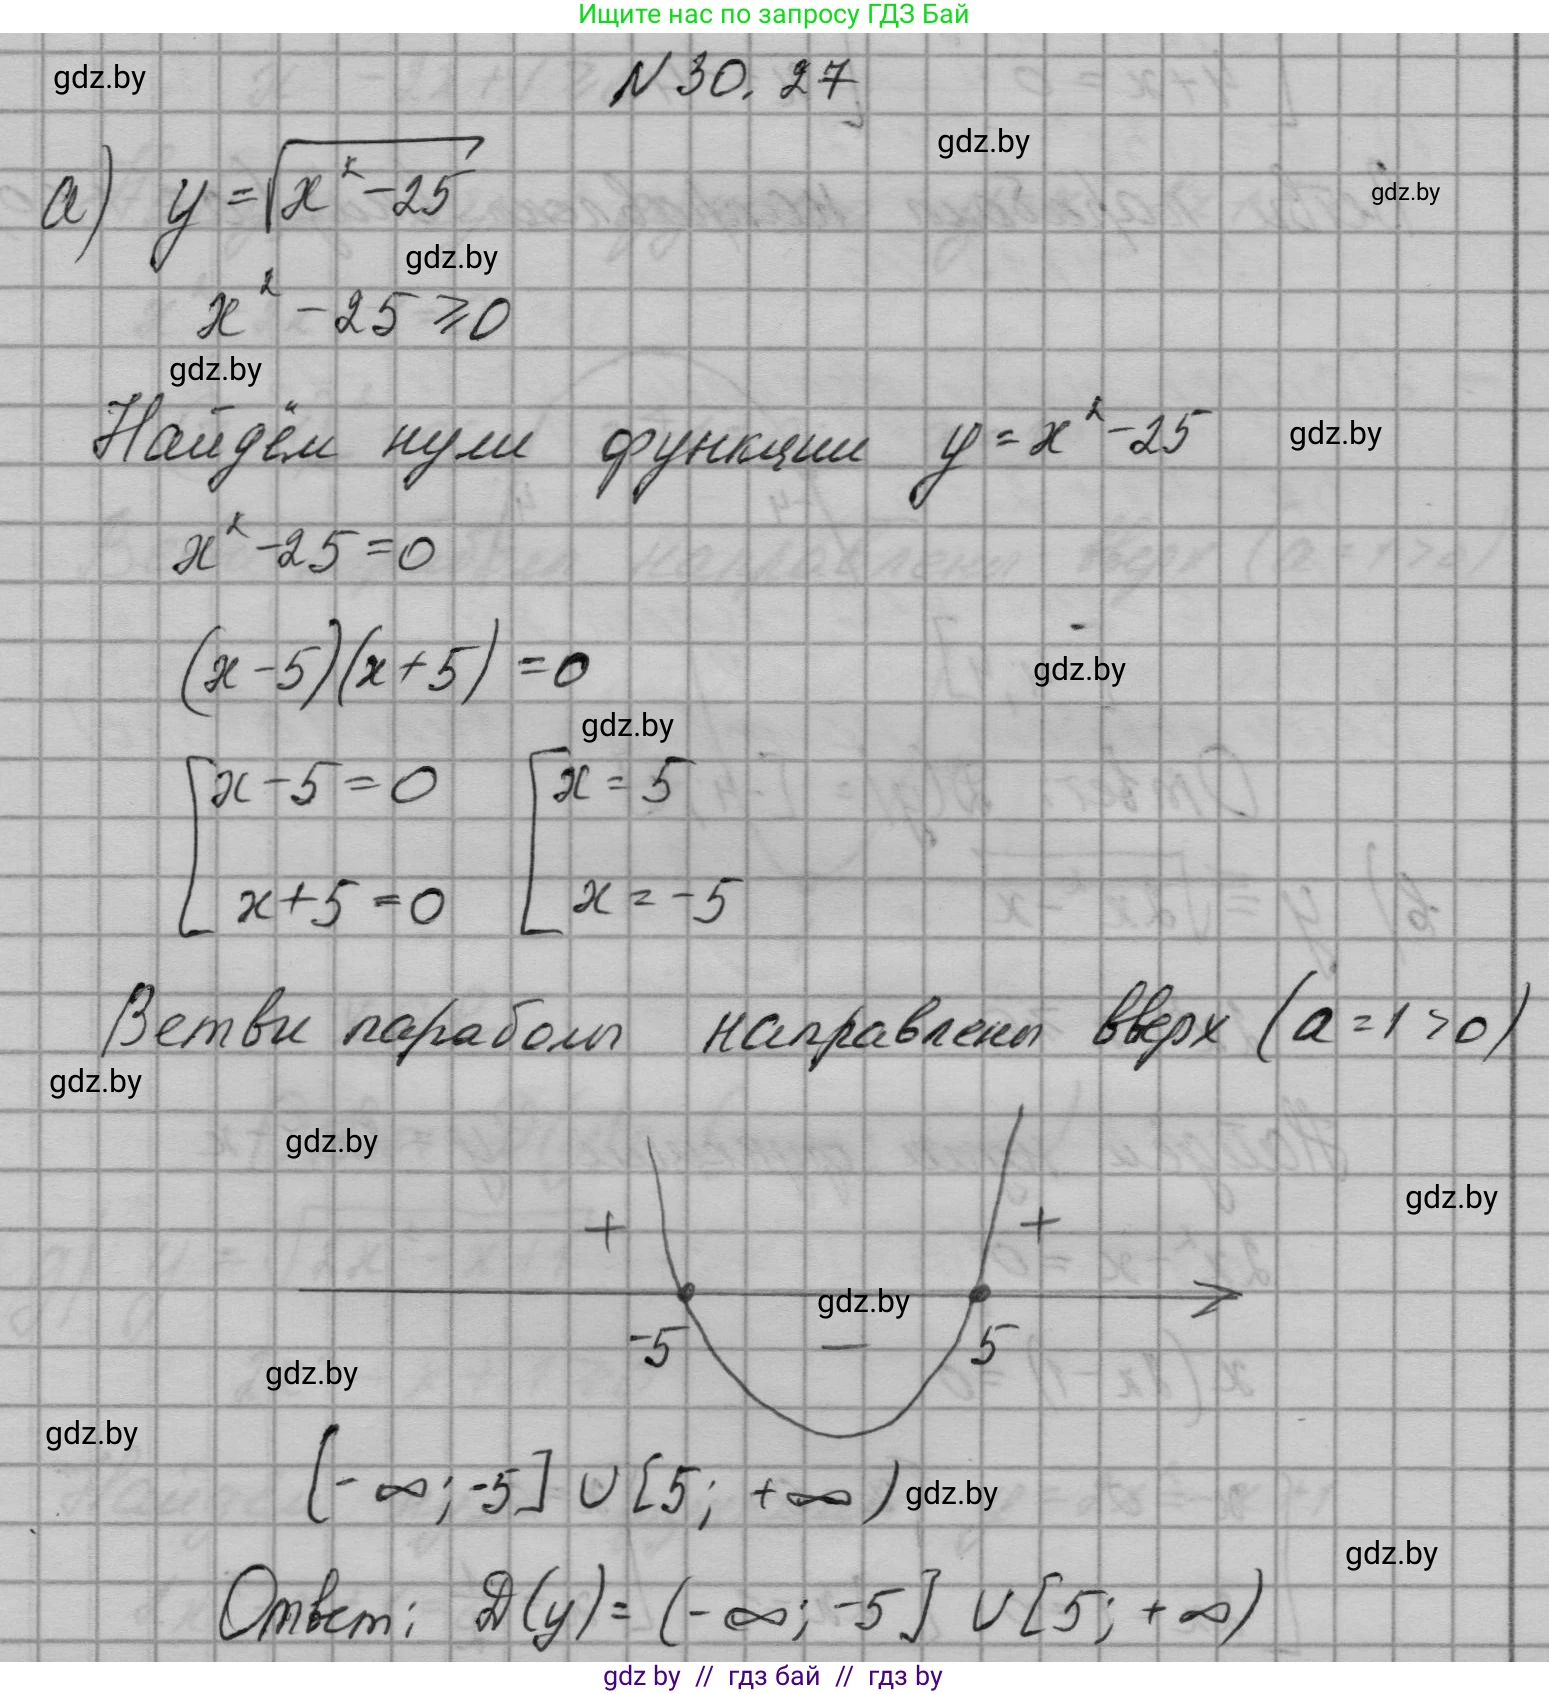 Ищите нас по запросу ГДЗ Бай
gdz.by
N 30.27
gdz.by
gdz.by
а) y = √(x² - 25)
gdz.by
x² - 25 ⩾ 0
gdz.by
Найдём нули функции y = x² - 25
gdz.by
x² - 25 = 0
(x - 5)(x + 5) = 0
gdz.by
gdz.by
[x - 5 = 0 [x = 5
x + 5 = 0 x = -5
Ветви параболы направлены вверх (a = 1 > 0)
gdz.by
gdz.by
gdz.by
+ +
gdz.by
-5 − 5
gdz.by
gdz.by
(-∞; -5] ∪ [5; +∞)
gdz.by
gdz.by
Ответ: D(y) = (-∞; -5] ∪ [5; +∞)
gdz by // гдз бай // гдз by